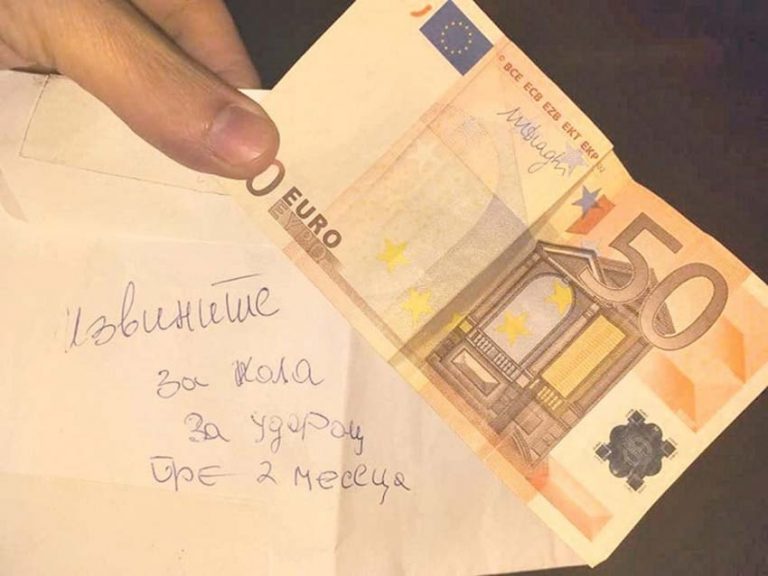 BCE ECB EZB EKT EKP
0 EURO
ΕΥΡΩ
50
извините
за кола
за ударац
пре 2 месеца